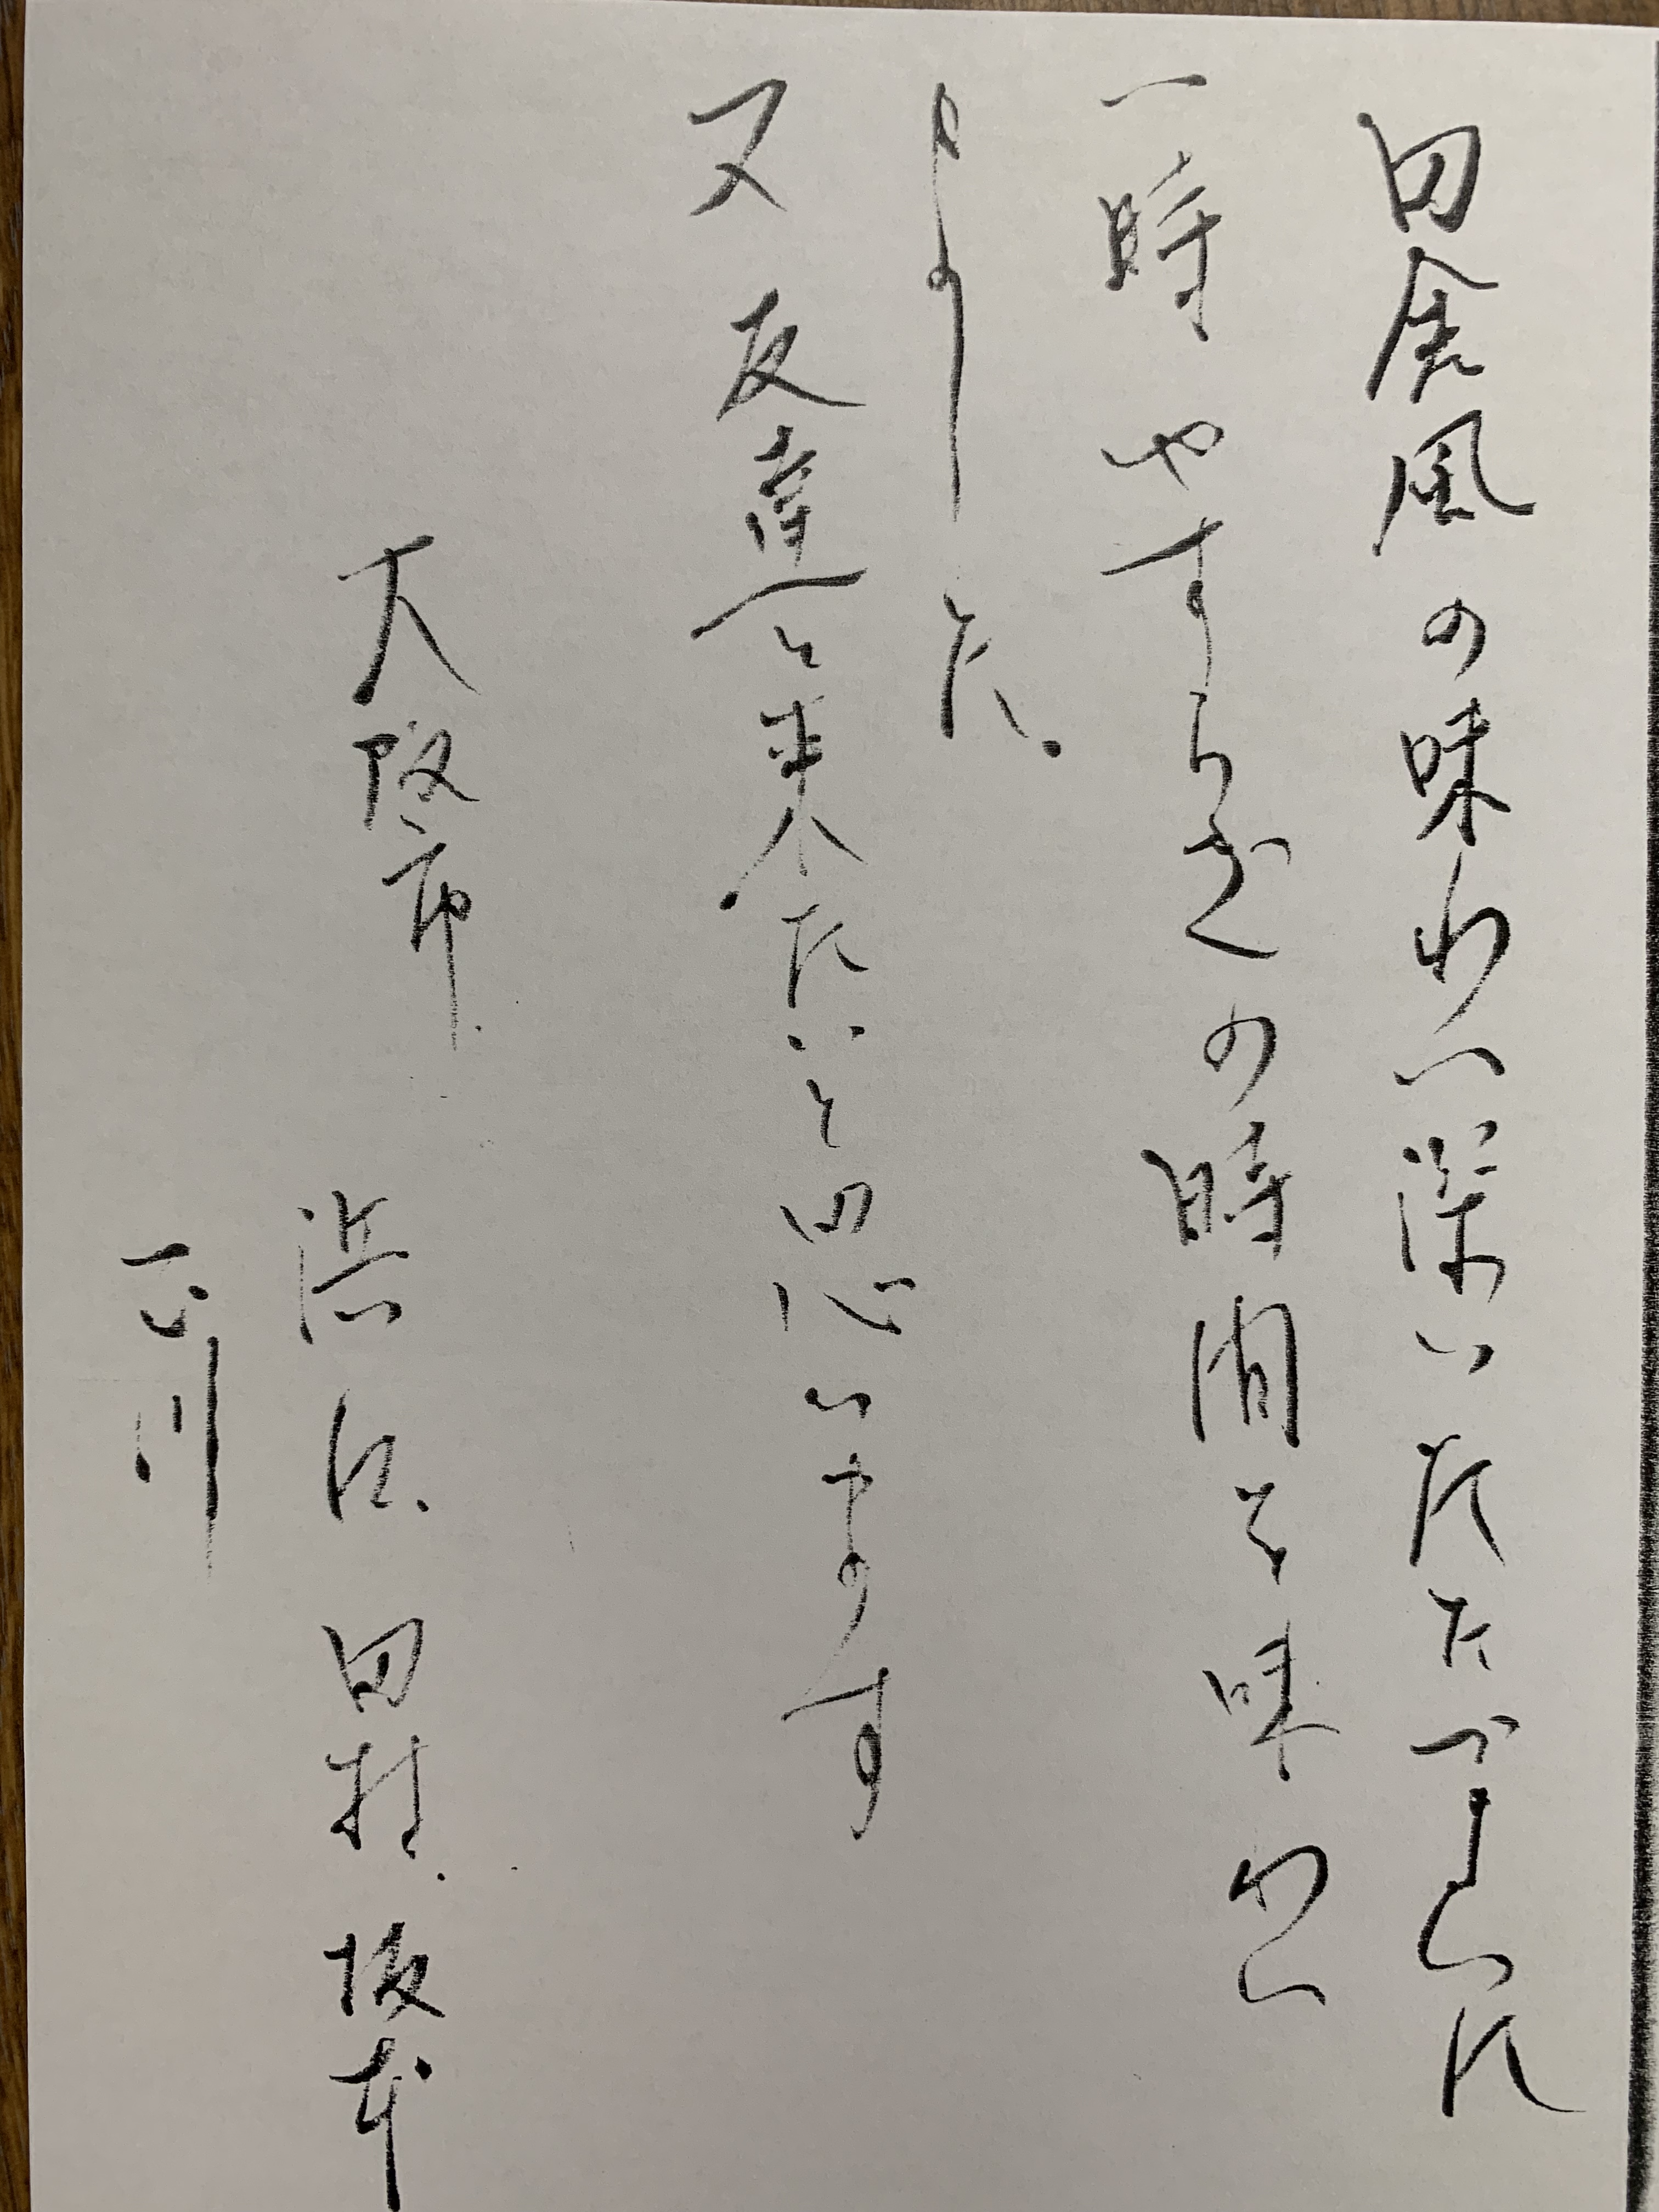 田舎風の味わい深いたたずまいに
一時やすらぎの時間を味わい
ました。
又友達と来たいと思います
大阪市 浜口 田村 坂本